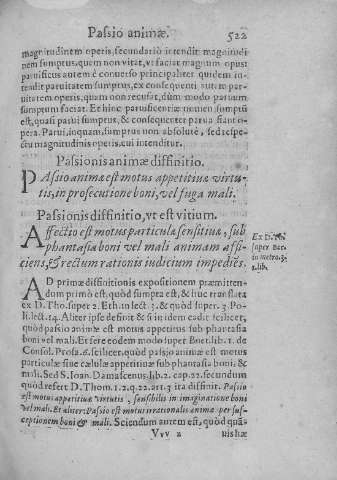 Passio animæ. 522
magnitudinem operis, secundariò intendit magnitudi
nem sumptus, quem non vitat, vt faciat magnum opus:
paruificus autem è conuerso principaliter quidem in-
tendit paruitatem sumptus, ex consequenti autem par-
uitatem operis, quam non recusat, dùm modo paruum
sumptum faciat. Et hinc paruificentiæ nomen sumptũ
est, quasi parui sumptus, & consequenter parua siant o-
pera. Parui, inquam, sumptus non absolutè, sed respe-
ctu magnitudinis operis, cui intenditur.
Passionis animæ diffinitio.
PAssio animæ est motus appetitiuæ virtu-
tis, in prosecutione boni, vel fuga mali.
Passionis diffinitio, vt est vitium.
Affectio est motus particulæ sensitiuæ, sub
phantasia boni vel mali animam affi-
ciens, & rectum rationis iudicium impediẽs.
Ex D. Tho.
super Boe.
in metro.
lib.
AD primæ diffinitionis expositionem præmitten-
dum primò est, quòd supra est, & huc translata
ex D. Tho. super 2. Eth. in lect. 3. & quòd super 2. Po-
li. lect. 14. Aliter ipse definit & si in idem cadit scilicet,
quòd passio animæ est motus appetitus sub phantasia
boni vel mali. Et fere eodem modo super Boet. lib. 1. de
Consol. Prosa. & scilicet, quòd passio animæ est motus
particulæ siue cælulæ appetitiuæ sub phantasia boni; &
mali. Sed S. Ioan. Damascenus lib. 2. cap. 22. secundum
quòd refert D. Thom. 1. 2. q. 22. art. 3 ita diffinit. Passio
est motus appetitiuæ virtutis, sensibilis in imaginatione boni
vel mali. Et aliter: Passio est motus irrationalis animæ per sus-
ceptionem boni & mali. Sciendum autem est, quòd quã-
Vvv 2 uis hæ